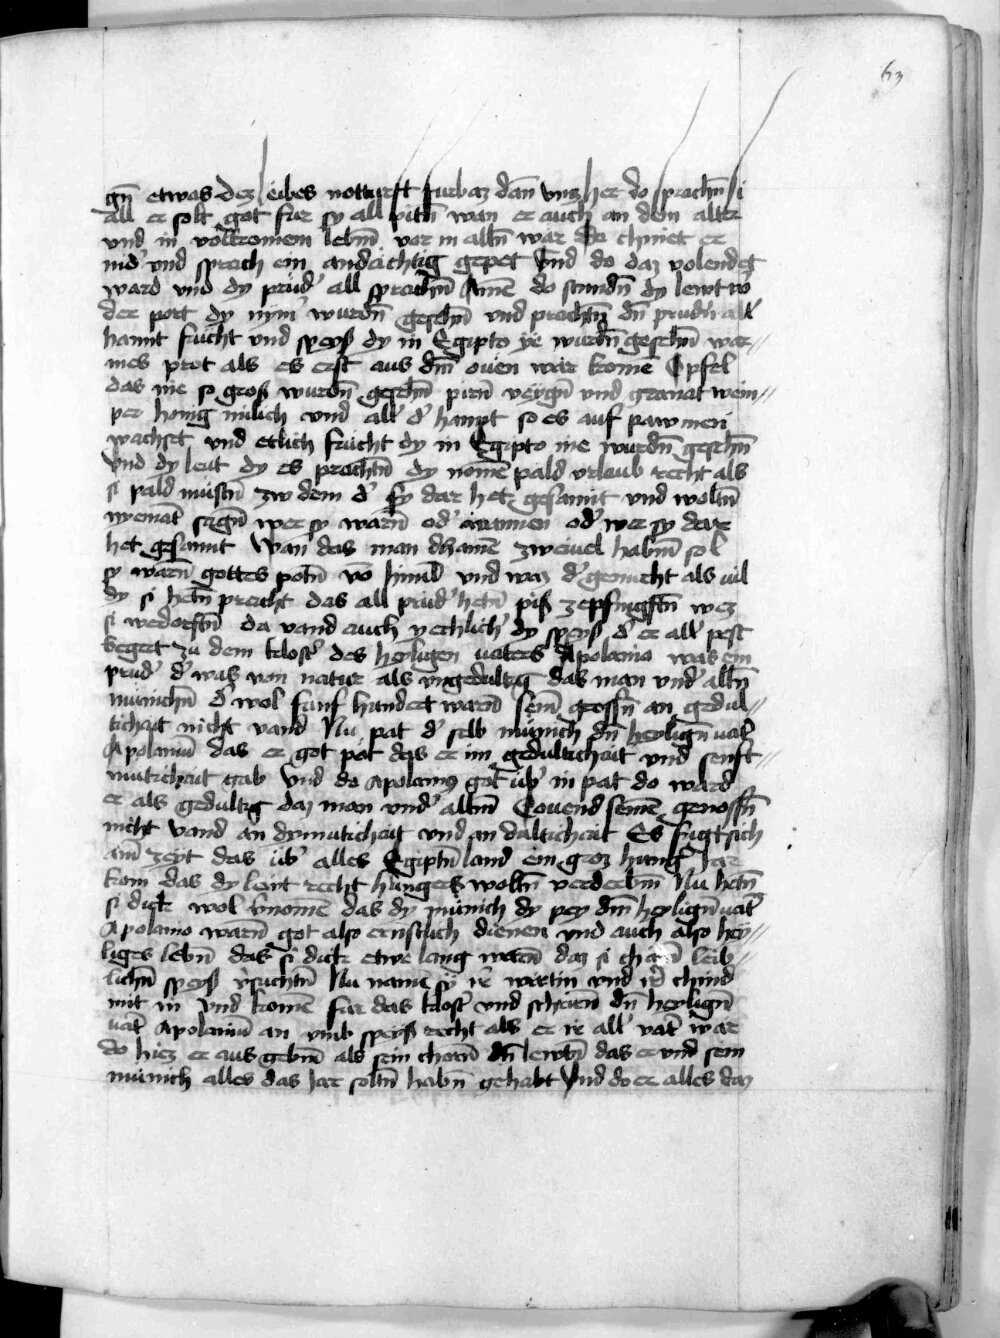 63
gn̄ etwas dez leibes notturft furbaz dan̄ vns her do prachn̄ si
all er solt got fur sy all pitn̄ wan er auch an dem alter
vnd in volkomem lebn̄ vor in alln̄ war do chniet er
nid' vnd sprach ein andachtig gepet vnd do daz volendet
ward vnd dy prud' all sprachn̄ Amē do stundn̄ dy lewt vō
der port dy nym' wurdn̄ gesehn̄ vnd prachtn̄ dn̄ prudn̄ all'
hannt frucht vnd speyß dy in Egipto ye wurdn̄ gesehn̄ war⸗
mes prot als es erst aus dm̄ ouen wār komē Opfel
das nie so groß wurdn̄ gesehn̄ pirn̄ veygn̄ vnd granat wein⸗
per honig milich vnd all' d' hannt so es auf pawmen
wachset vnd etlich frücht dy in Egipto nie wurdn̄ gesehn̄
Vnd dy leut dy es prachtn̄ dy nomē pald vrlaub recht als
si pald müstn̄ zw dem d' sy dar het gesannt vnd woltn̄
nyemāt sagn̄ wer sy warn̄ od' wannen od' wer sy dar
het gesannt Wan das man dhainē zweiuel habn̄ sol
sy warn̄ gottes potn̄ vō himl vnd waz d' gemecht als vil
dy si hetn̄ pracht das all prüd' hetn̄ piß zepfingstn̄ wez
si wedorftn̄ da vand auch yechlich' dy speyß d' er all' pest
begert zu dem klost' des heyligen uaters Apolonio was ein
prud' d' was von natur als vngedultig das man vnd' alln̄
münichn̄ d' wol funf hundert warn̄ sein̄ grossn̄ an gedul⸗
tichait nicht vand Nu pat d' selb münich dn̄ heylign̄ uat'
Apolonium das er got pät das er im gedultichait vnd senft⸗
mutichait gab Vnd do Apolonius got üb' in pat do ward
er als gedultig daz man vnd' alln̄ Couend seinē genossn̄
nicht vand an dymutichait vnd an dultichait Es fugt sich
ain̄ zeyt das üb' alles Egiptn̄ land ein groz hung' Jar
kom das dy leut recht hungers woltn̄ verderbn̄ Nu hetn̄
si dick wol v'nomē das dy münich dy pey dm̄ heylign̄ uat'
Apolonio warn̄ got also ernstlich dienen vnd auch also hey⸗
liges lebn̄ das si dick etwe lang warn̄ daz si chain̄ leib⸗
lichn̄ speyß v'suchtn̄ Nu namē sy ir' weib vnd ir' chind
mit in vnd komē fur das klost' vnd schrien dn̄ heylign̄
uat' Apolonium an vmb speyß recht als er ir all' vat' war
do hiez er aus gebn̄ als sein chorn̄ dn̄ lewtn̄ das er vnd sein
münich alles das Jar soltn̄ habn̄ gehabt Vnd do er alles daz